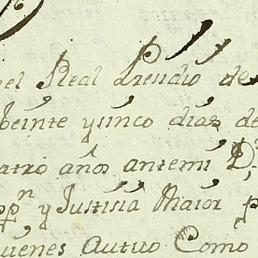 el Real Presidio de
Veinte ysinco dias de
atro años antemi D,
pp.n y Justisia Maior p
uienes actuo Como